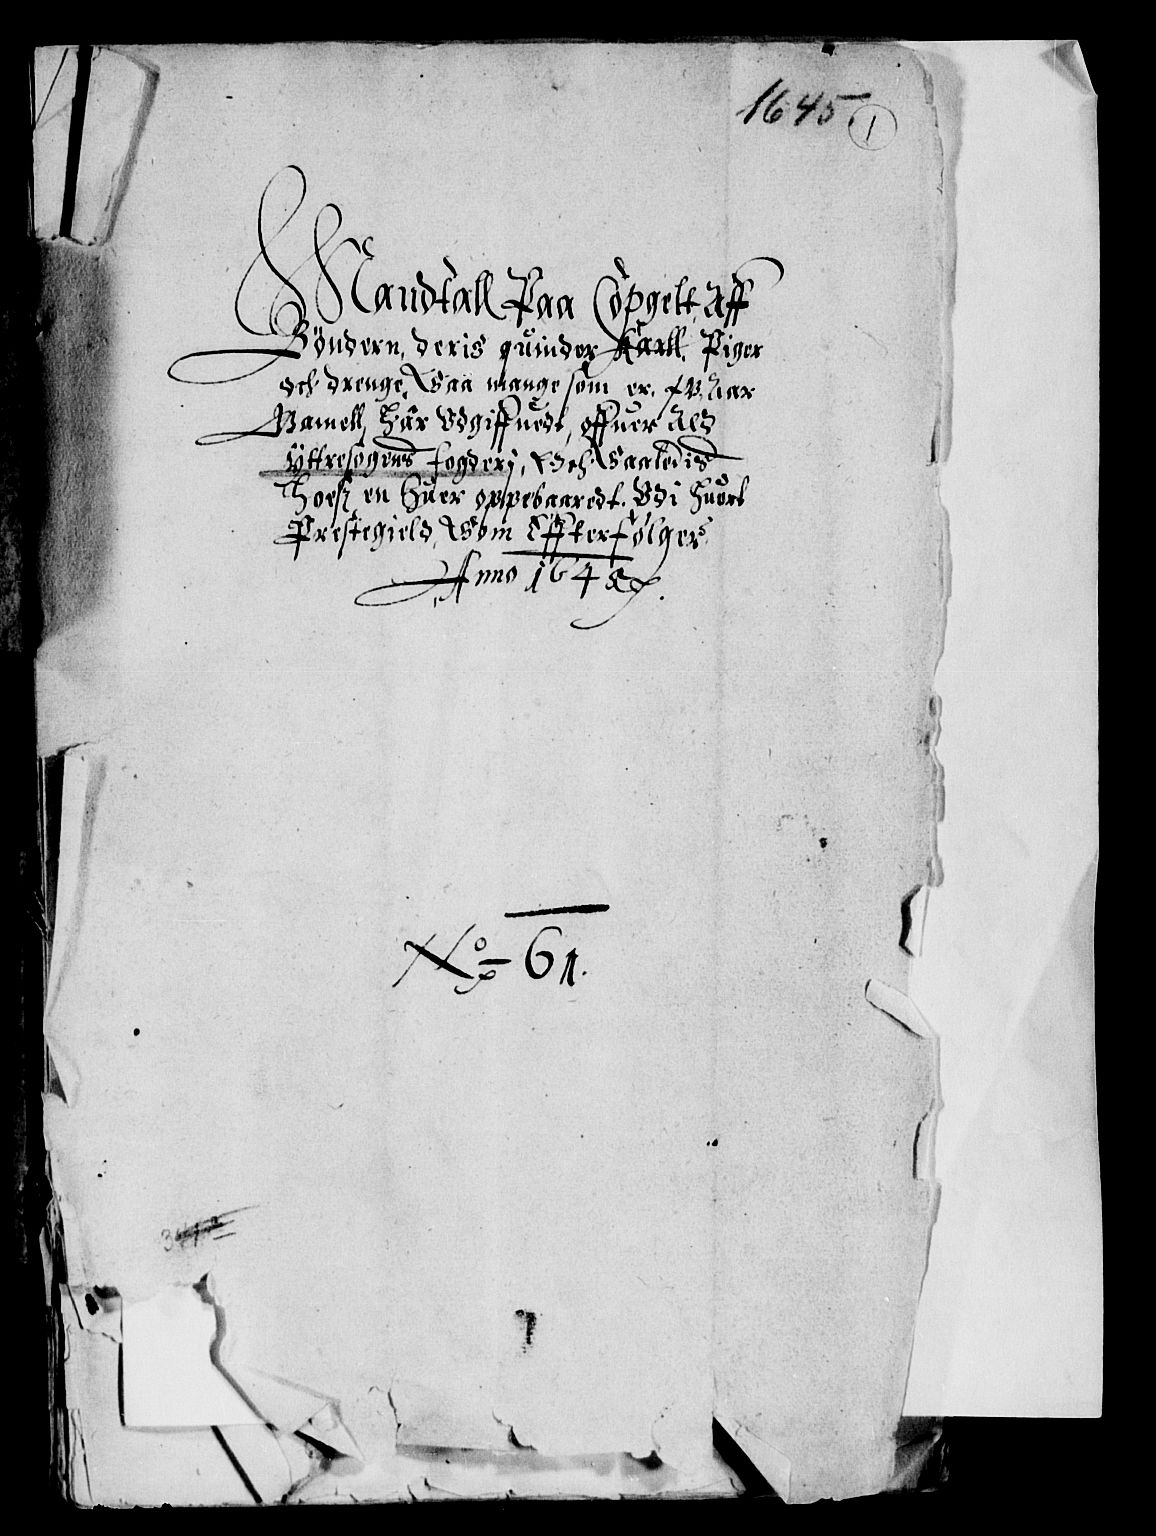 1645.
1
Mandtall Paa Copgelt, Aff
Bönderne, deris quinder Karll, Piger
och drenge, Saa mange som er. 15 Aar
Gamell, Här Vdgiffuedt, offuer Ald
Yttresogens fogderj, Och Saaledis
hoesz en huer oppebaaredt. Vdi huert
Prestegield, Som Effterfölger
Anno 1645.
No 61.